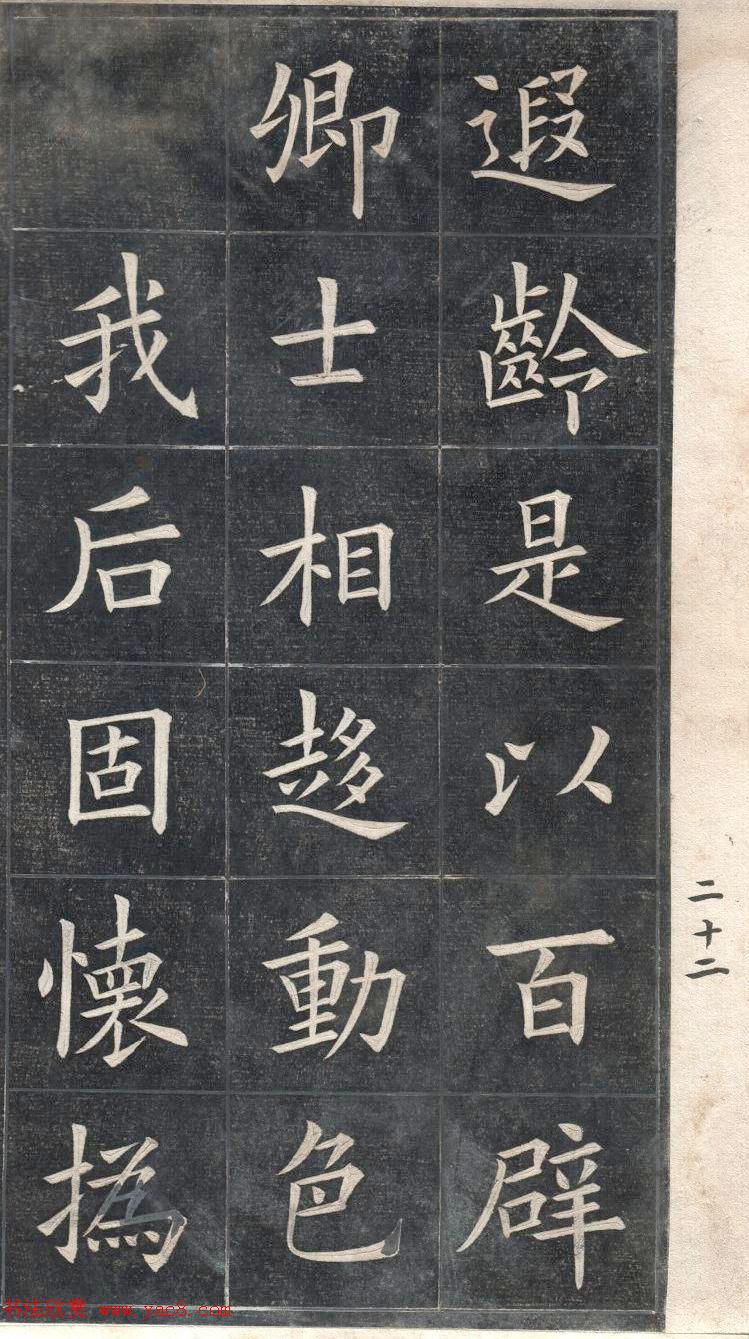 二十二
遐齡是以百辟
卿士相趍動色
我后固懷撝
书法欣赏 www.yac8.com